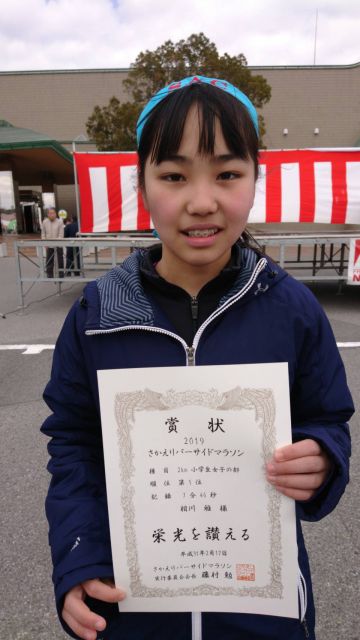 賞状
2019
さかえリバーサイドマラソン
種目 2km 小学生女子の部
順位 第1位
記録 7分46秒
様
栄光を讃える
平成31年2月17日
さかえリバーサイドマラソン
実行委員会会長 藤村 勉